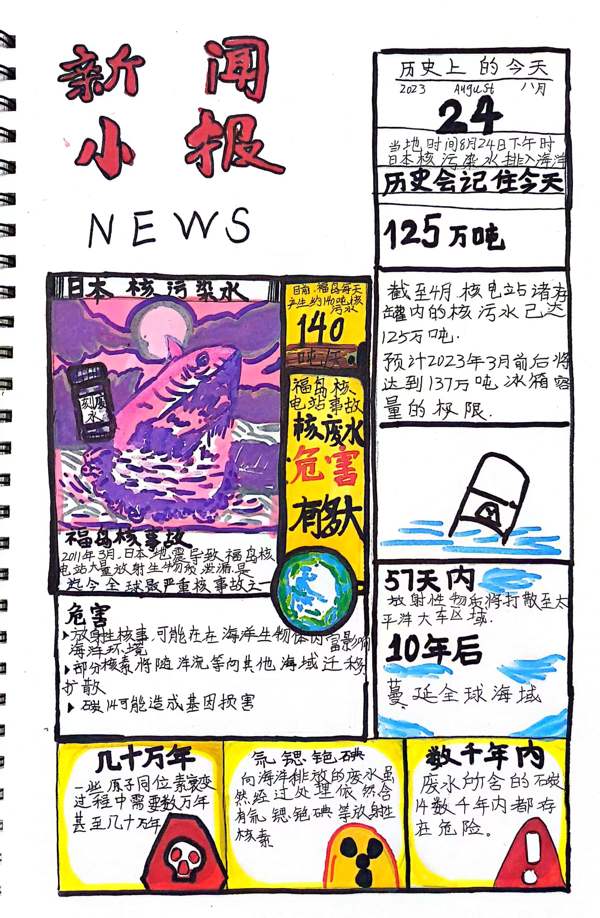 新闻
小报
NEWS
历史上的今天
2023 August 八月
24
当地时间8月24日下午时
日本核污染水排入海洋
历史会记住今天
125万吨
截至4月核电站储存
罐内的核污水已达
125万吨.
预计2023年3月前后将
达到137万吨
量的极限.
日本核污染水
目前,福岛每天
产生约140吨核
污水
140
吨/天
福岛核
电站事故
核废水
危害
有多大
废
水
福岛核事故
2011年3月.日本地震导致福岛核
电站大量放射生物质泄漏.是
迄今全球最严重核事故之一
危害
放射性核事.可能在在海洋生物体内富影响
海洋环境
部分核素将随洋流等向其他海域迁移
扩散
碳14可能造成基因损害
57天内
放射性物质将打散至太
平洋大车区域.
10年后
蔓延全球海域
几十万年
一些原子同位素衰变
过程中需要数万年
甚至几十万年
氚锶铯碘
向海洋排放的废水虽
然经过处理依然含
有氚锶铯碘等放射性
核素
数千年内
废水所含的碳
14数千年内都存
在危险。